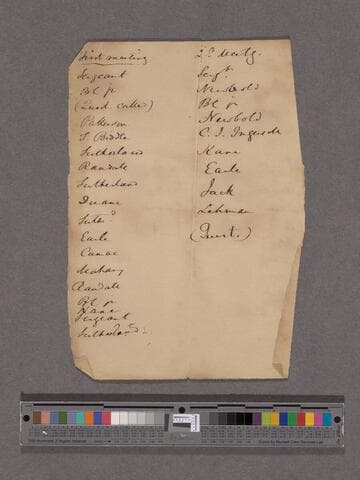 First meeting
Sergeant
Bl p
(Quest. called)
Patterson
J. Biddle
Sutherland
Randall
Sutherland
Duane
Suthd
Earle
Canoe
Mahany
Randall
Bl p
Kane
Sergeant
Sutherland:
2d Meetg.
Sergt.
Newbold
Bl p
Newbold
C. J. Ingersoll
Kane
Earle
Jack
Lehman
(Quest.)